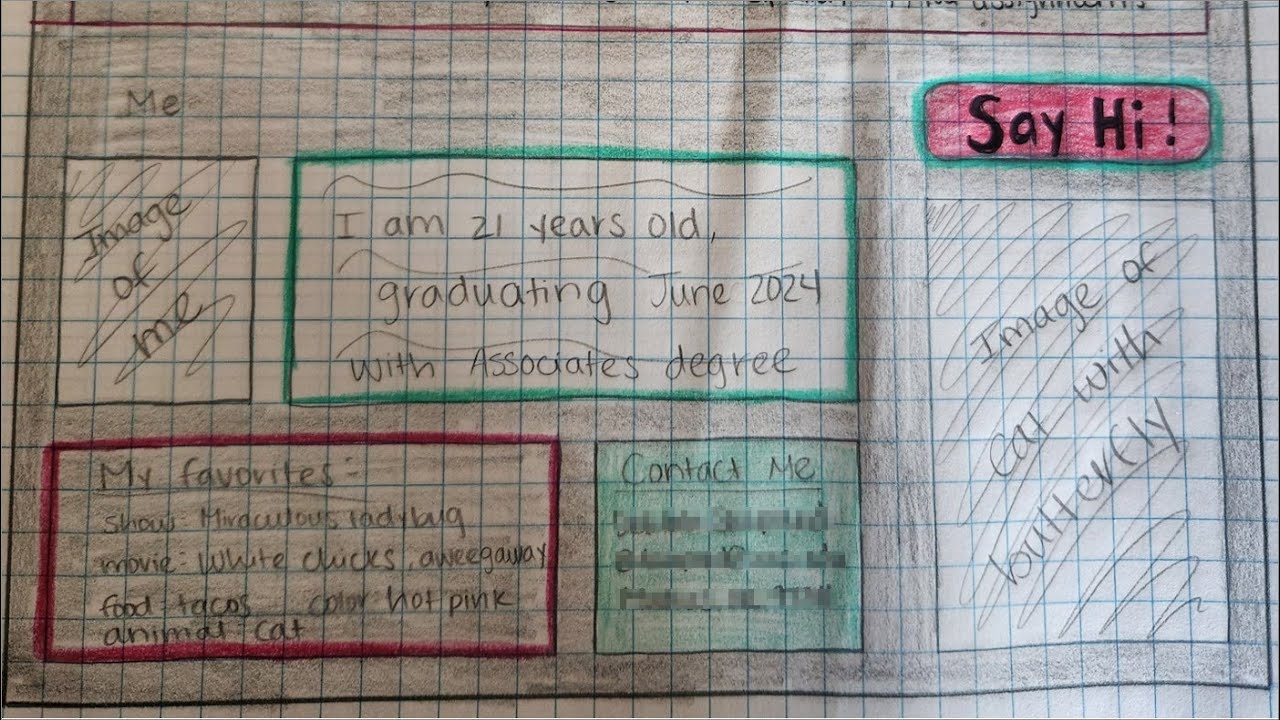 assignments
Me
Say Hi!
Image
of
me
I am 21 years old,
graduating June 2024
with Associates degree
Image of
Cat with
butterfly
My favorites:
show: Miraculous ladybug
movie: White chicks,
food: tacos color hot pink
animal: cat
Contact Me